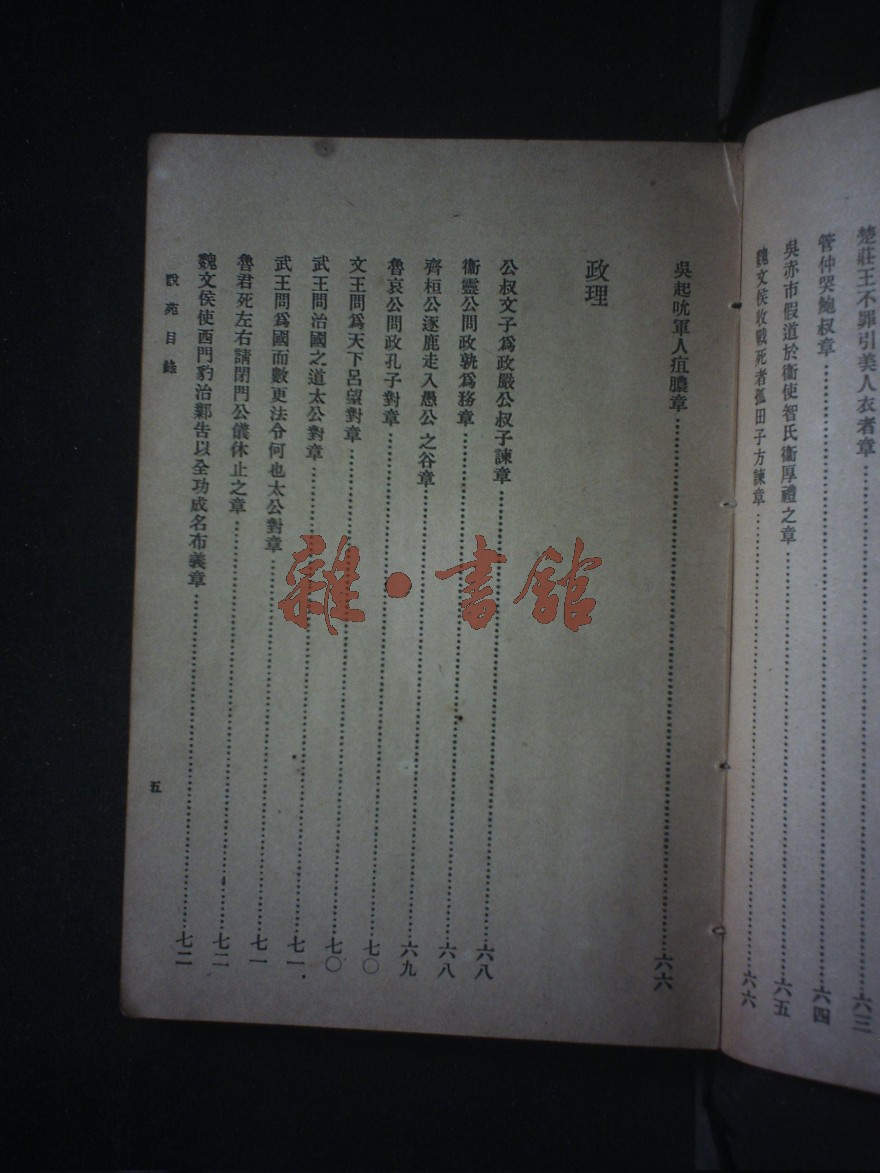 楚莊王不罪引美人衣者章……六三
管仲哭鮑叔章……六四
吳赤市假道於衞使智氏衞厚禮之章……六五
魏文侯收戰死者孤田子方諫章……六六
吳起吮軍人疽膿章……六六
政理
公叔文子爲政嚴公叔子諫章……六八
衞靈公問政孰爲務章……六八
齊桓公逐鹿走入愚公之谷章……六九
魯哀公問政孔子對章……七〇
文王問爲天下呂望對章……七〇
武王問治國之道太公對章……七一
武王問爲國而數更法令何也太公對章……七一
魯君死左右請閉門公儀休止之章……七二
魏文侯使西門豹治鄴告以全功成名布義章……七二
說苑目錄
五
雜·書館